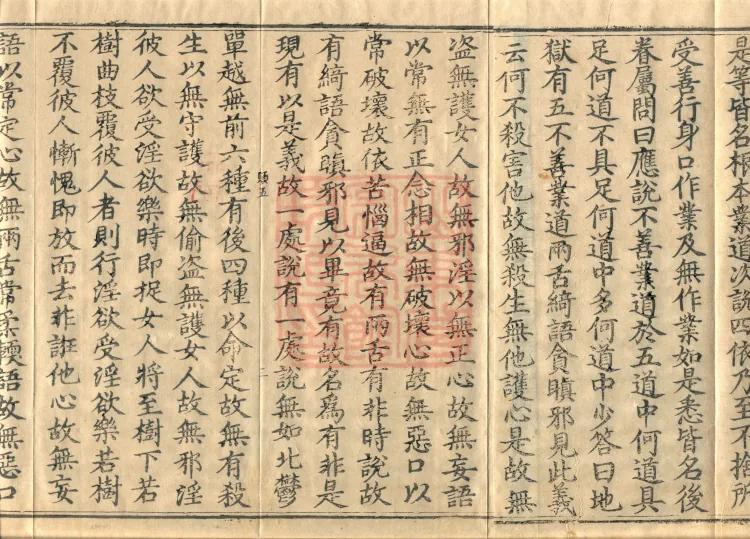 是等皆名根本業道次說四依乃至不捨所
受善行身口作業及無作業如是悉皆名後
眷屬問曰應說不善業道於五道中何道具
足何道不具足何道中多何道中少答曰地
獄有五不善業道兩舌綺語貪瞋邪見此義
云何不殺害他故無殺生無他護心是故無
盜無護女人故無邪淫以無正心故無妄語
以常無有正念相故無破壞心故無惡口以
常破壞故依苦惱逼故有兩舌有非時說故
有綺語貪瞋邪見以畢竟有故名為有非是
現有以是義故一處說有一處說無如北鬱
單越無前六種有後四種以命定故無有殺
生以無守護故無偷盜無護女人故無邪淫
彼人欲受淫欲樂時即捉女人將至樹下若
樹曲枝覆彼人者則行淫欲受淫欲樂若樹
不覆彼人慚愧即放而去非誑他心故無妄
語以常定心故無兩舌常柔軟語故無惡口